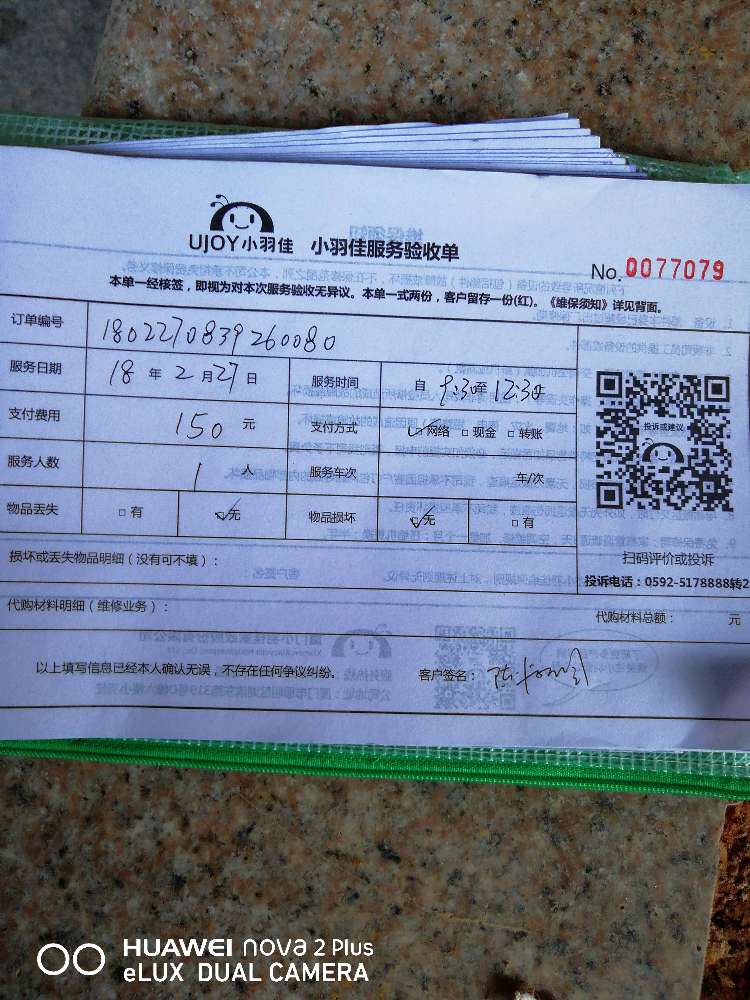 UJOY小羽佳 小羽佳服务验收单
No. 0077079
本单一经核签，即视为对本次服务验收无异议。本单一式两份，客户留存一份(红)。《维保须知》详见背面。
订单编号 1802270839260080
服务日期 18 年 2 月 27 日 服务时间 自 9:30 至 12:30
支付费用 150 元 支付方式 ☑网络 □现金 □转账
投诉或建议
服务人数 1 人 服务车次 车/次
物品丢失 □有 ☑无 物品损坏 ☑无 □有
扫码评价或投诉
损坏或丢失物品明细（没有可不填）：
投诉电话：0592-5178888转2
代购材料明细（维修业务）： 代购材料总额： 元
以上填写信息已经本人确认无误，不存在任何争议纠纷。 客户签名：
HUAWEI nova 2 Plus
eLUX DUAL CAMERA